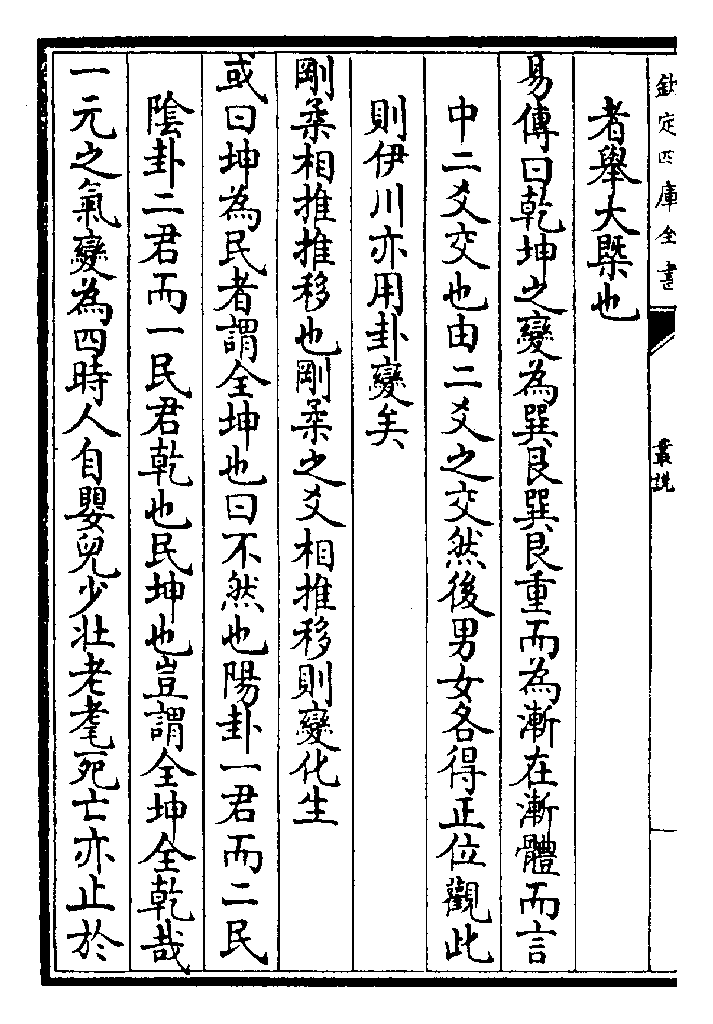 欽定四庫全書
叢說
者舉大槩也
易傳曰乾坤之變為巽艮巽艮重而為漸在漸體而言
中二爻交也由二爻之交然後男女各得正位觀此
則伊川亦用卦變矣
剛柔相推推移也剛柔之爻相推移則變化生
或曰坤為民者謂全坤也曰不然也陽卦一君而二民
陰卦二君而一民君乾也民坤也豈謂全坤全乾哉
一元之氣變為四時人自嬰兒少壯老耄死亡亦止於